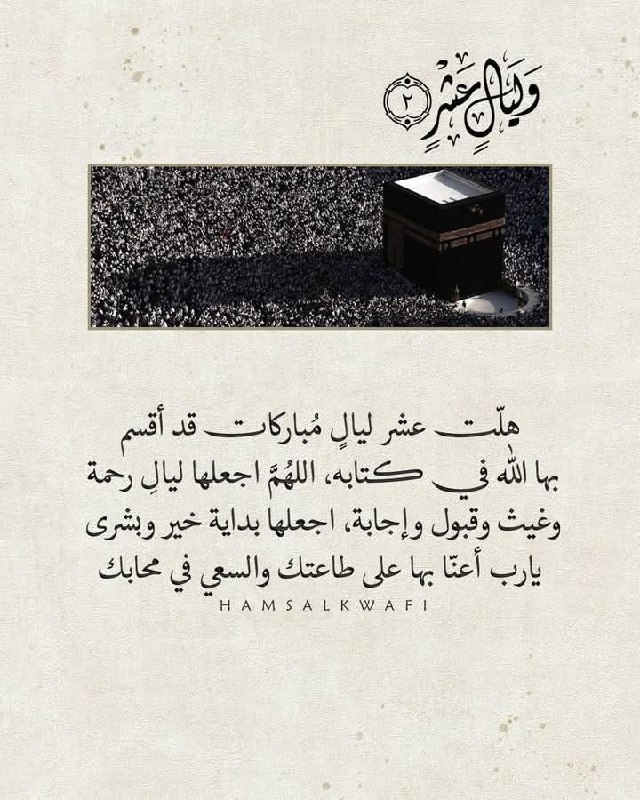 وَلَيَالٍ عَشْرٍ ٢
هلّت عشر ليالٍ مُباركات قد أقسم
بها الله في كتابه، اللهُمَّ اجعلها ليالِ رحمة
وغيث وقبول وإجابة، اجعلها بداية خير وبشرى
يارب أعنّا بها على طاعتك والسعي في محابك
HAMSALKWAFI